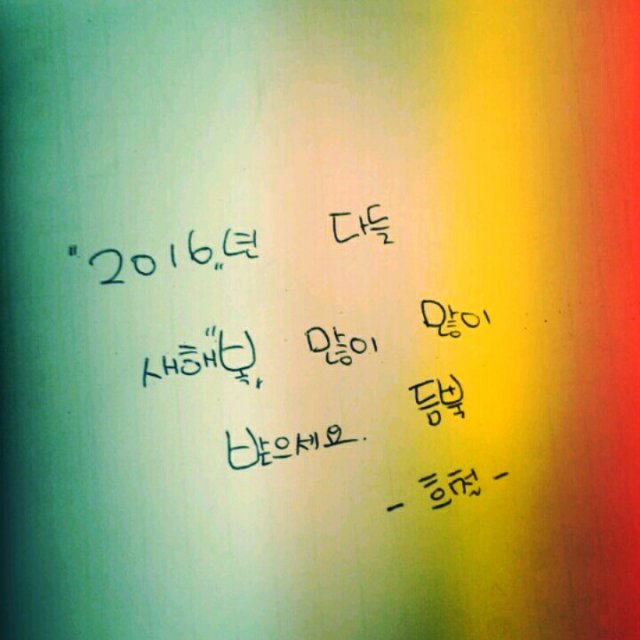 "2016"년 다들
새해"복" 많이 많이
받으세요. 듬뿍
- 흐철 -